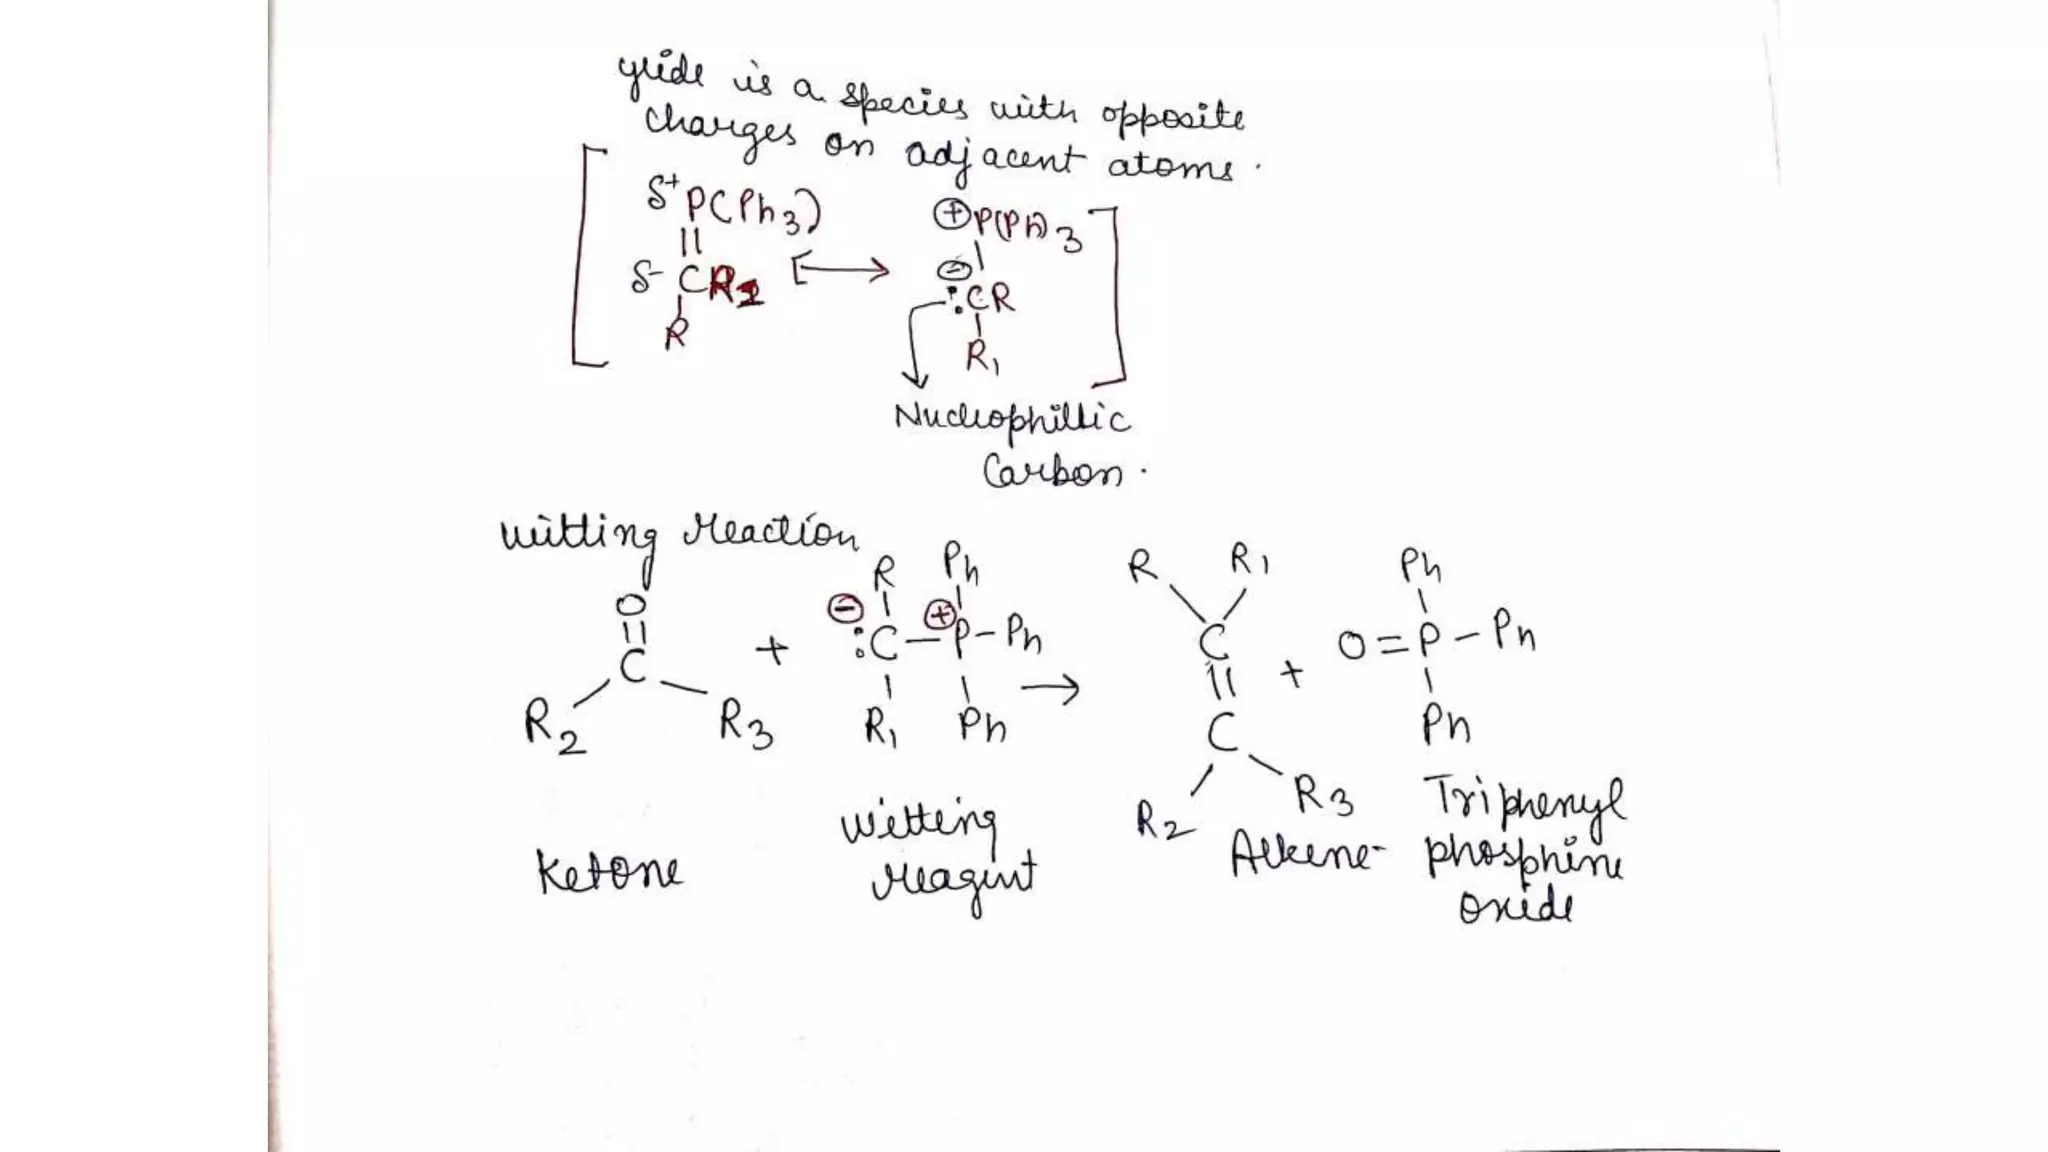 ylide is a species with opposite
charges on adjacent atoms.
δ+ P(Ph3) ⊕P(Ph)3
δ- C ⟷ ⊖ :CR
R R1
Nucleophillic
Carbon.
Witting reaction
O R Ph R R1 Ph
C + ⊖ :C - ⊕P - Ph → C + O=P-Ph
R2 R3 R1 Ph C Ph
R2 R3
Ketone Witting reagent Alkene Triphenyl
phosphine
oxide